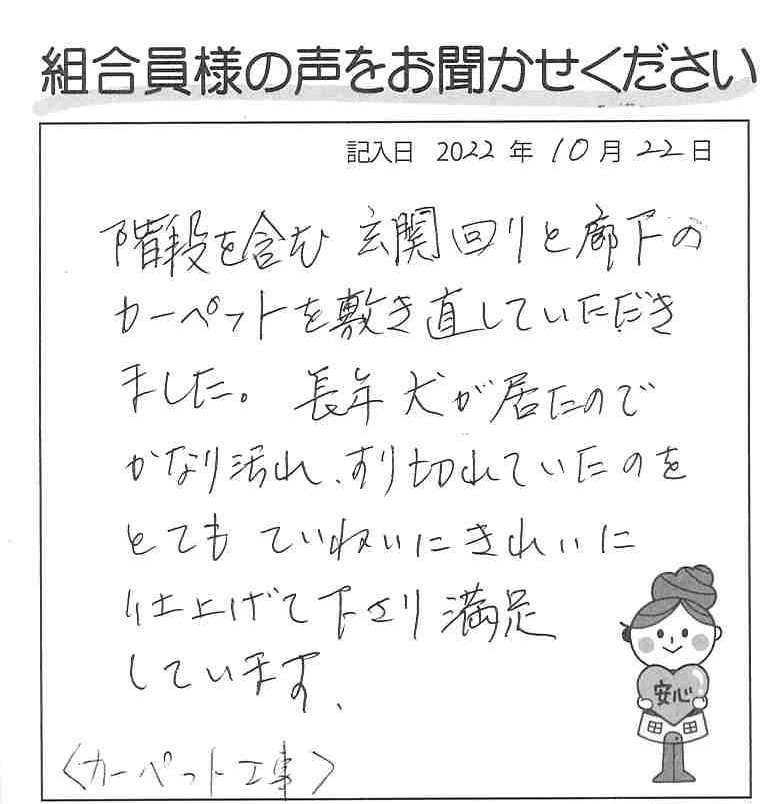 組合員様の声をお聞かせください
記入日 2022 年 10 月 22 日
階段を含む 玄関回りと廊下の
カーペットを敷き直していただき
ました。 長年犬が居たので
かなり汚れ、すり切れていたのを
とても ていねいにきれいに
仕上げて下さり満足
しています、
安心
〈カーペット工事〉